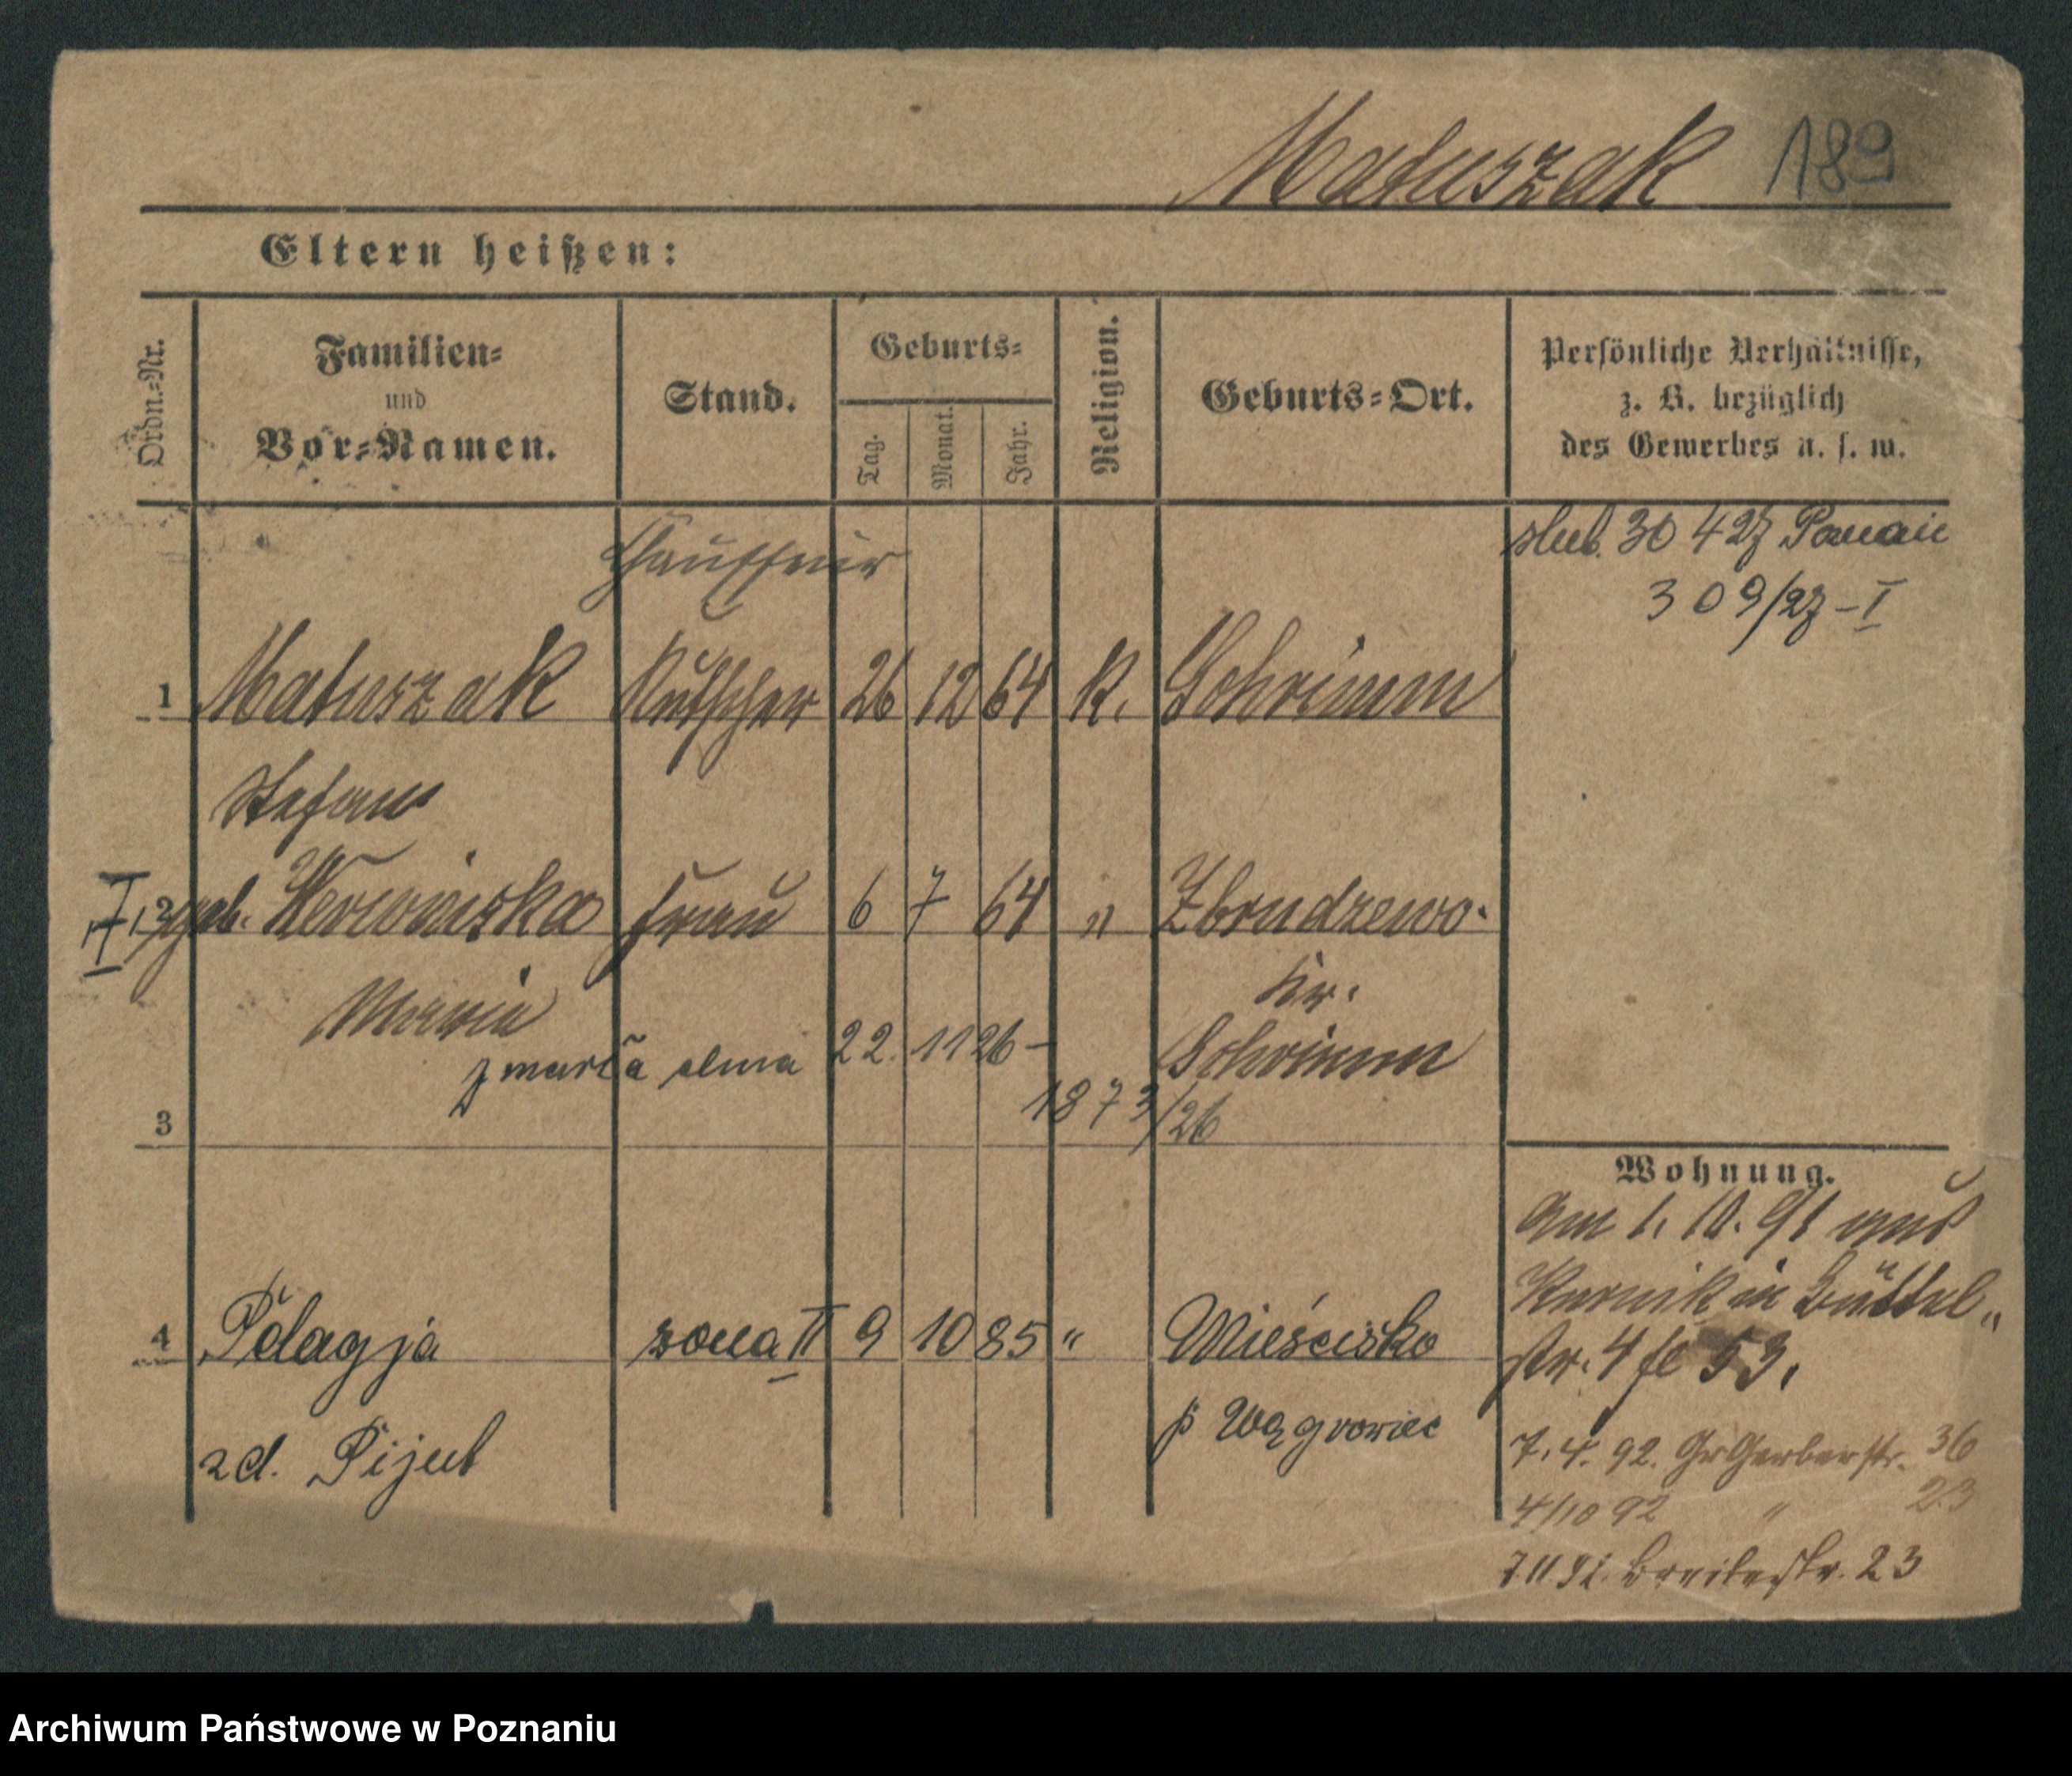 Matuszak 189
Eltern heißen:
Ordn.-Nr.
Familien-
und
Vor-Namen.
Stand.
Geburts-
Tag.
Monat.
Jahr.
Religion.
Geburts-Ort.
Persönliche Verhältnisse,
z. B. bezüglich
des Gewerbes u. s. w.
ślub. 30 4 27 Poznań
309/27-I
Chauffeur
1 Matuszak Kutscher 26 12 64 K. Schrimm
Stefan
I 2 geb. Frau 6 7 64 " Zbrudzewo.
Maria Kr.
Schrimm
zmarła dnia 22. 11 26 -
1873/26
3
Wohnung.
Am 1. 10. 91 aus
Kurnik in Büttel„
str. 4 53.
4 Pelagja żona II 9 10 85 " Mieścisko
zd. Pijut p Wągrowiec
7. 4. 92. Gr Gerberstr. 36
4/10 92 " 23
7.11.92. Breitestr. 23
Archiwum Państwowe w Poznaniu